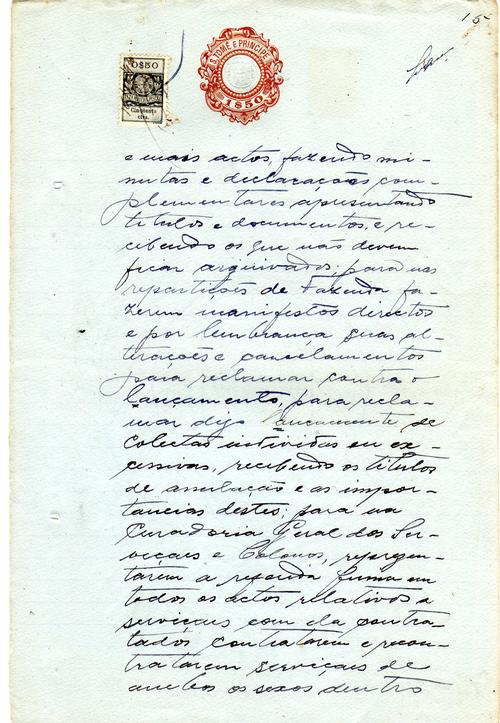 15
0$50
Cinquenta
ctvs.
S. TOMÉ E PRÍNCIPE
1$50
e mais actos, fazendo mi-
nutas e declarações com-
plementares apresentando
titulos e documentos, e re-
cebendo os que nas devem
ficar arquivados; para nas
repartições de Fazenda fa-
zerem manifestos directos
e por lembrança suas al-
terações e cancelamentos
para reclamar contra o
lançamento, para recla-
mar digo lançamento de
colectas individas ou ex-
cessivas, recebendo os titulos
de anulação e as impor-
tancias destes; para na
Curadoria Geral dos Ser-
viçaes e Colonos, represen-
tarem a referida firma em
todos os actos relativos a
serviçaes com ela contra-
tados contratarem e recon-
tratarem serviçaes de
ambos os sexos dentro